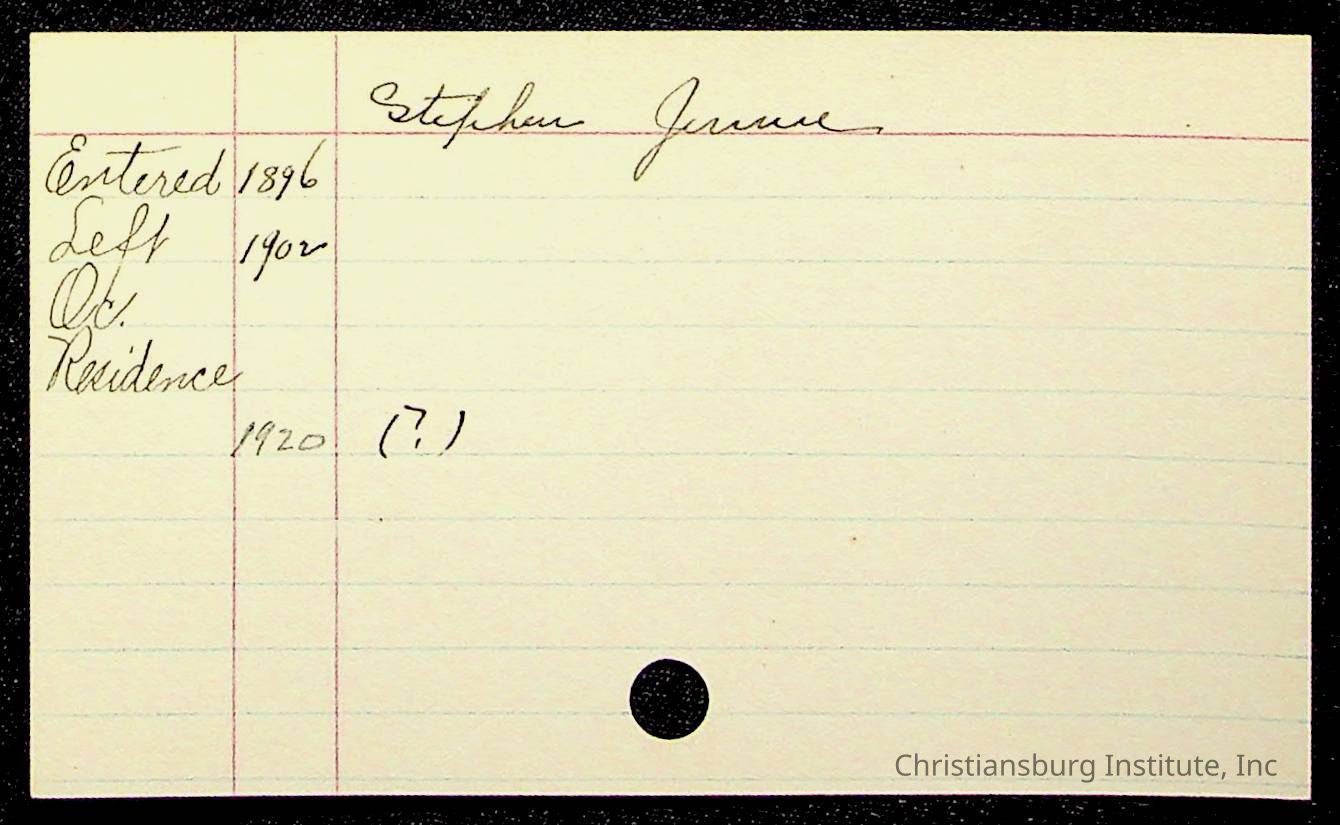 Stephen Jennie
Entered 1896
Left 1902
Oc.
Residence
1920 (?)
Christiansburg Institute, Inc